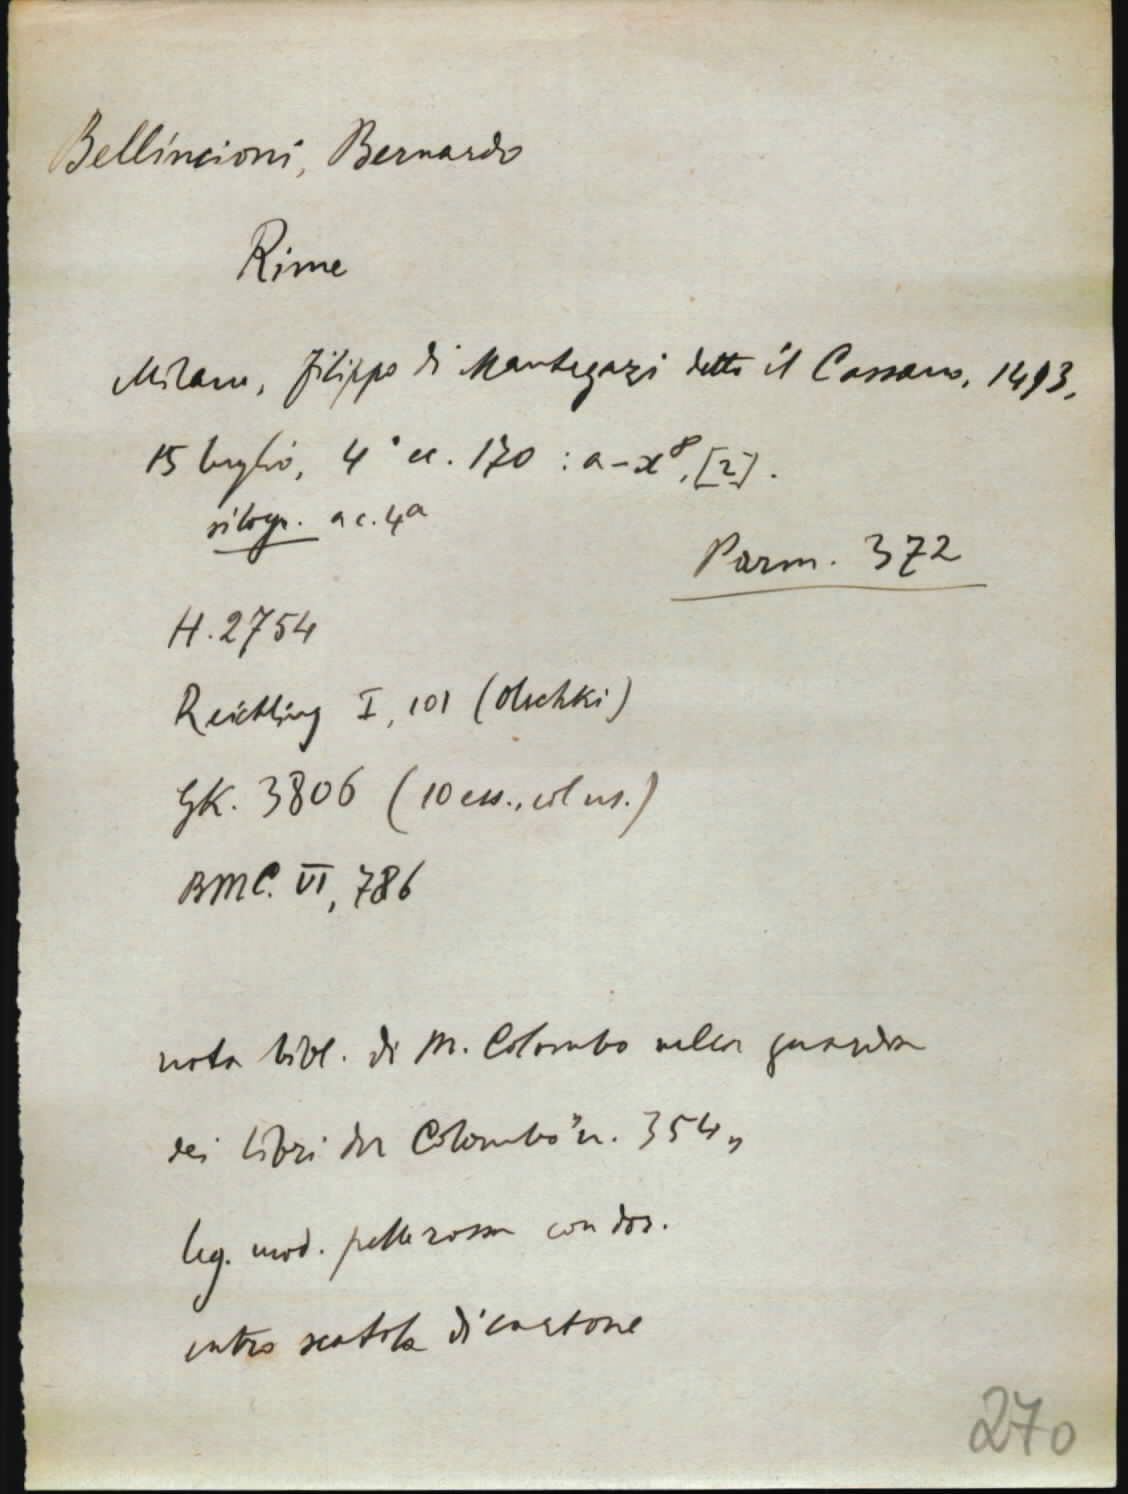 Bellincioni, Bernardo
Rime
Milano, Filippo di Mantegazi detto il Cassano, 1493,
15 luglio, 4° cc. 170 : a-x⁸, [2].
silogr. a c. 4a
Parm. 372
H. 2754
Reichling I, 101 (Olschki)
GK. 3806 (10 ess., col ns.)
BMC. VI, 786
nota bibl. di M. Colombo nella guardia
dei libri del Colombo "n. 354"
leg. mod. pelle rossa con dor.
entro scatola di cartone
270